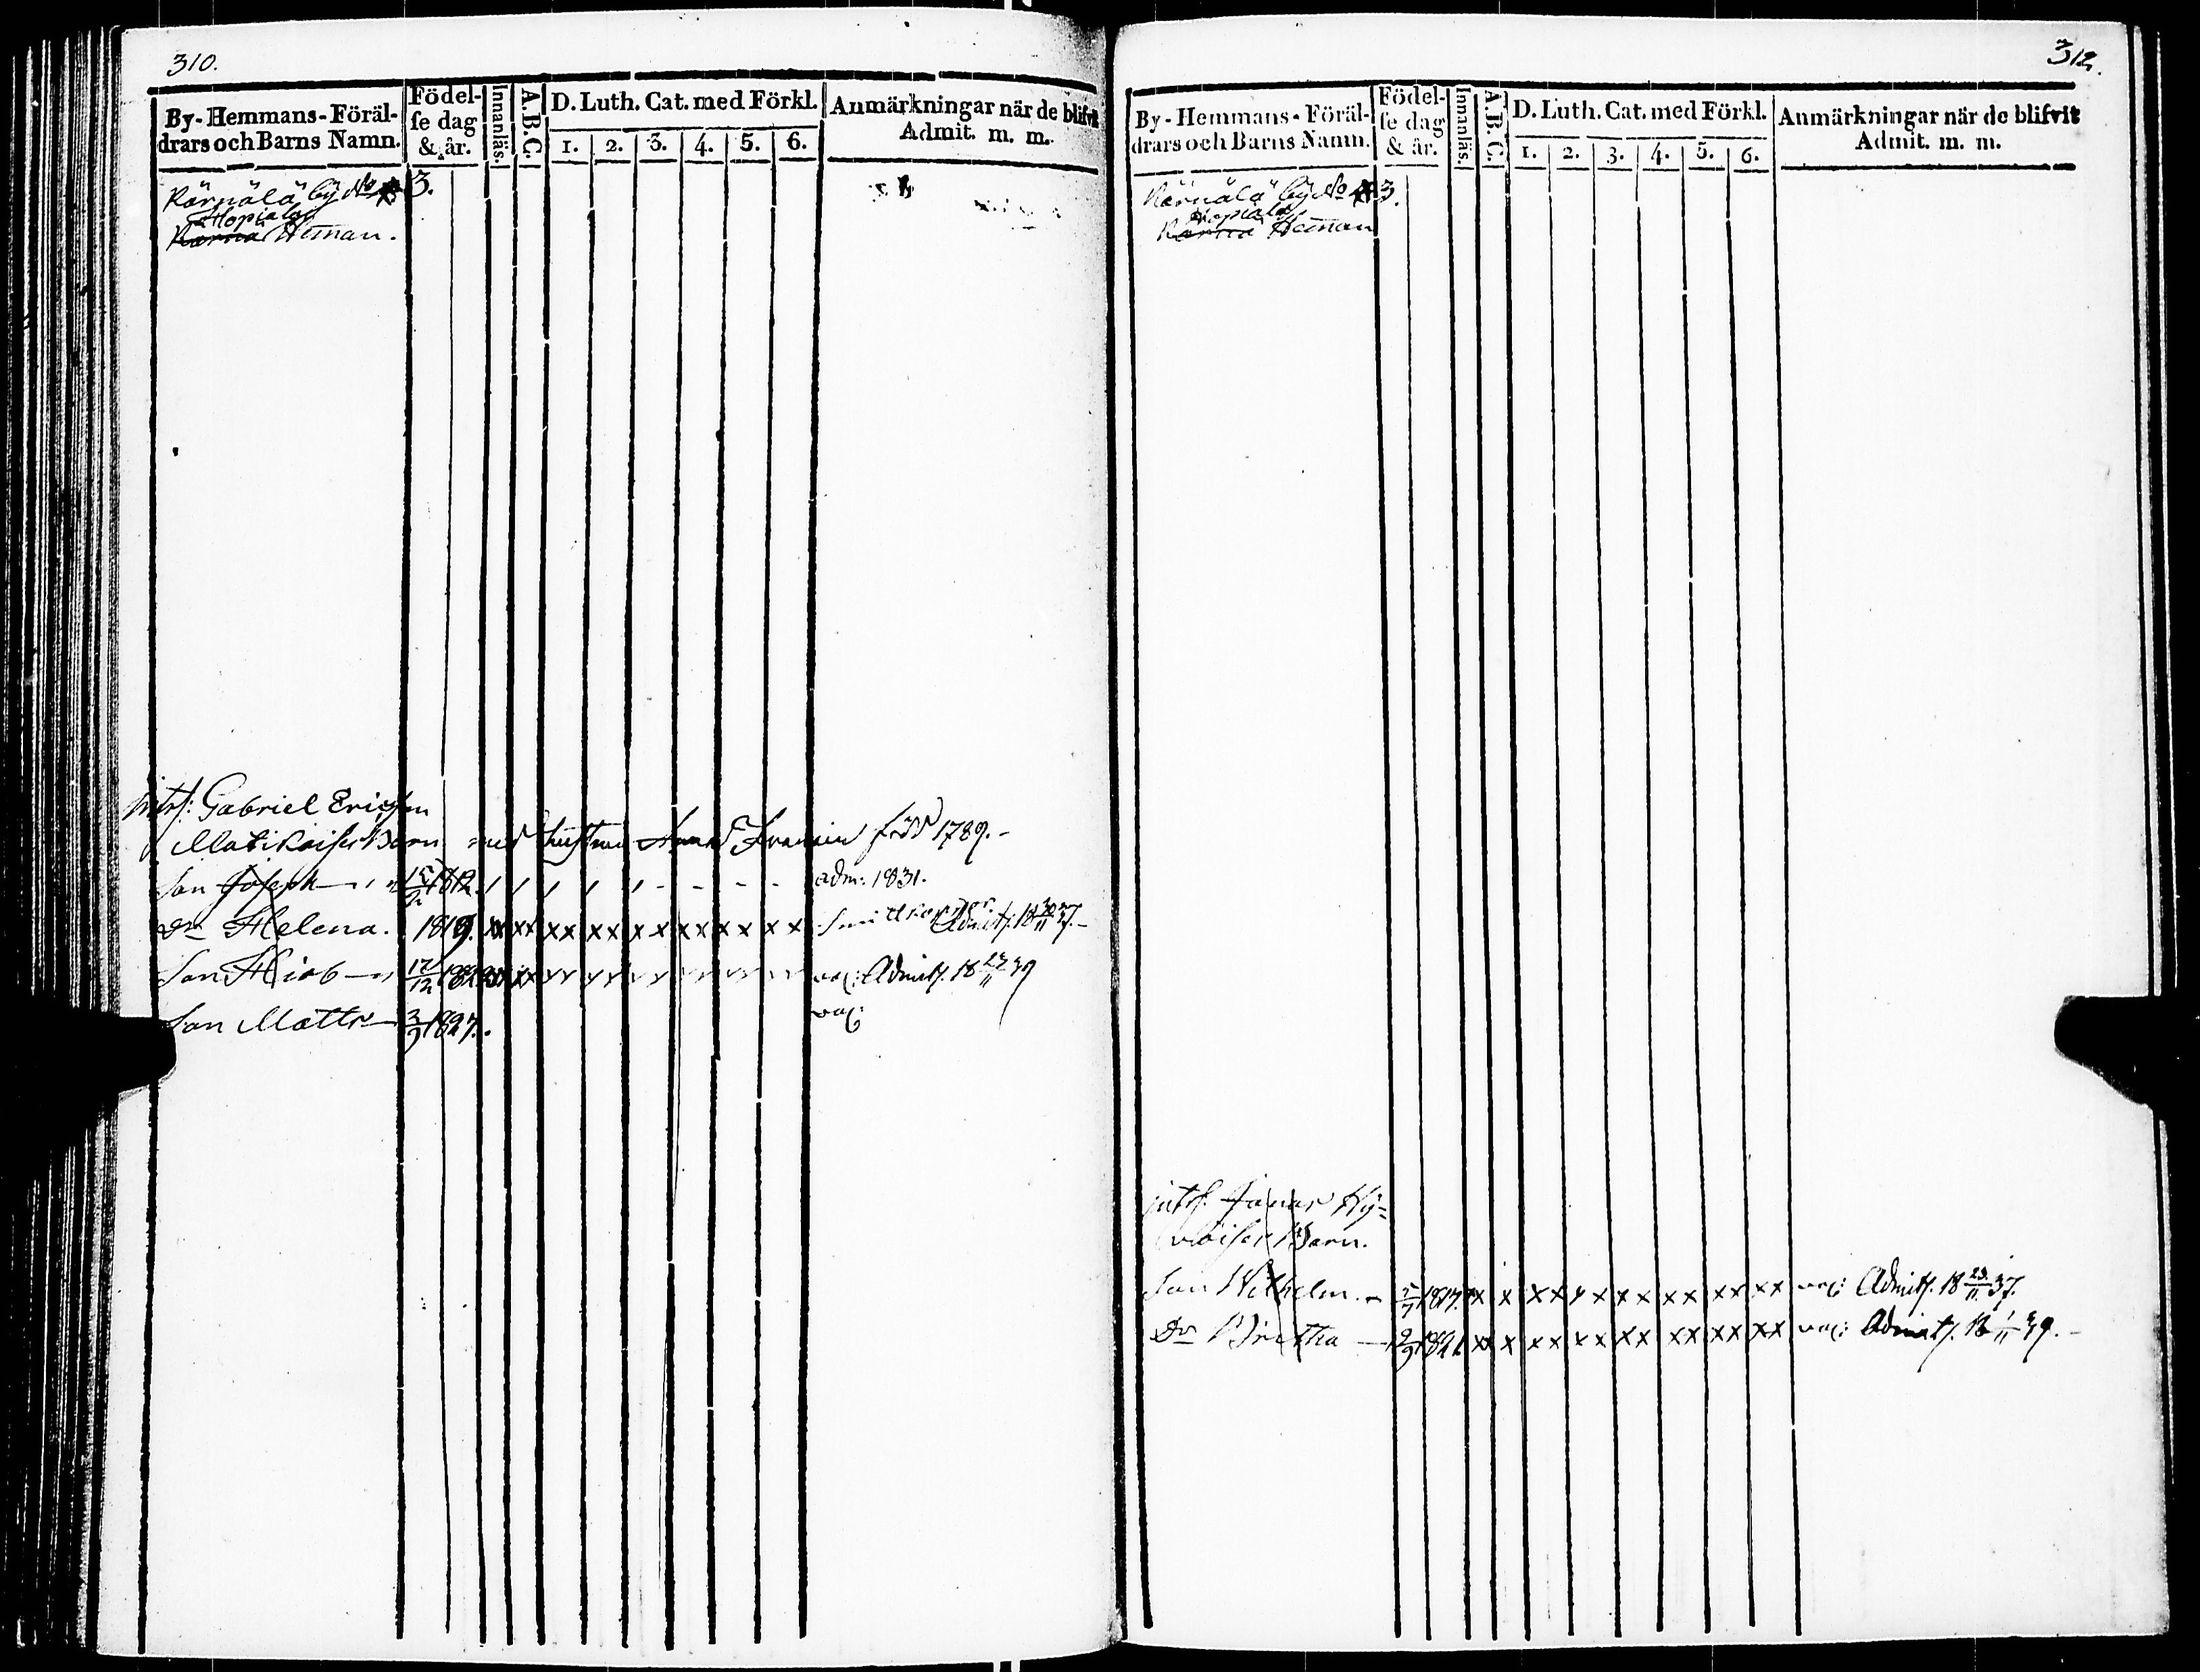 310.
By-Hemmans-Föräl-
drars och Barns Namn.
Födel-
se dag
& år.
Innanläs.
A.B.C.
D. Luth. Cat. med Förkl.
1. 2. 3. 4. 5. 6.
Anmärkningar när de blifvit
Admit. m. m.
Kärnälä by No 3.
Hopiala
Kärnä Heman.
Gabriel Ericsson
Barn med hustrun född 1789.-
Son Joseph 1812. adm: 1831.
Dr Helena. 1819. xx xx xx xx x x xx xx x x Admitt. 18 30/11 37.-
Son Hiob 17/12 vac: Admitt. 18 23/11 39
Son Matts 3/9 1827. vac:
312.
By-Hemmans-Föräl-
drars och Barns Namn.
Födel-
se dag
& år.
Innanläs.
A.B.C.
D. Luth. Cat. med Förkl.
1. 2. 3. 4. 5. 6.
Anmärkningar när de blifvit
Admit. m. m.
Kärnälä by No 3.
Hopiala
Kärnä Heman
Barn.
Son Wilhelm. 1817. xx x xx x x x x xx xx xx vac: Admitt. 18 23/11 37.
Dr Bretha 2/9 1821 xx x x x x x xx xx xx xx vac: Admitt. 18 1/11 39.-